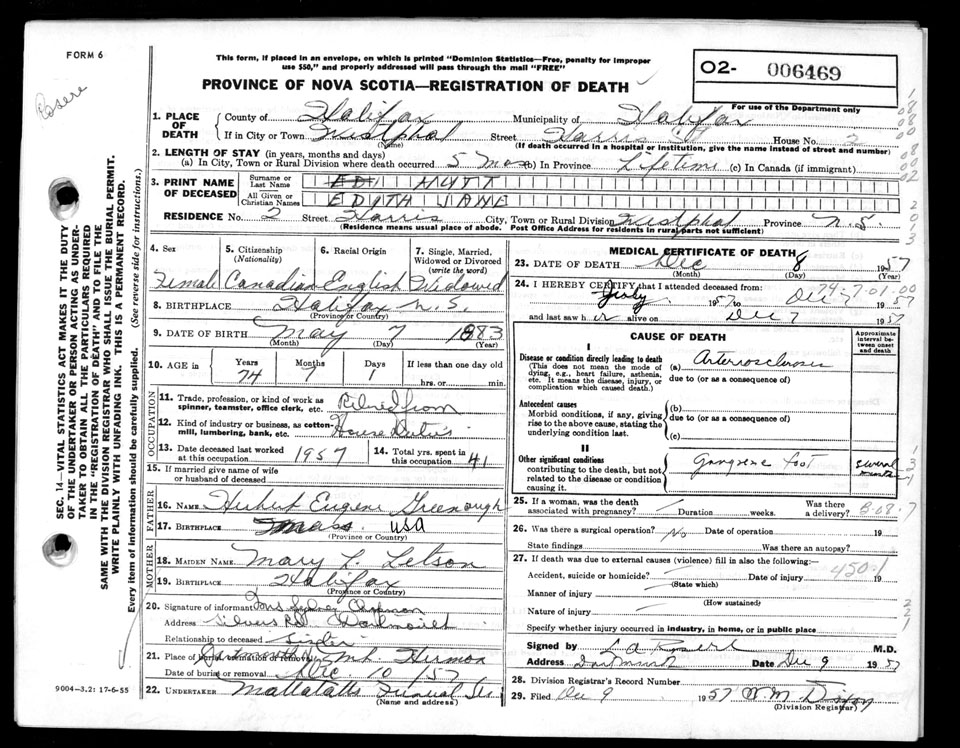 FORM 6
This form, if placed in an envelope, on which is printed "Dominion Statistics—Free, penalty for improper
use $50," and properly addressed will pass through the mail "FREE"
PROVINCE OF NOVA SCOTIA—REGISTRATION OF DEATH
O2- 006469
For use of the Department only
1. PLACE OF DEATH
County of Halifax Municipality of Halifax
If in City or Town Westphal Street Harris St House No. 2
(Name) (If death occurred in a hospital or institution, give the name instead of street and number)
2. LENGTH OF STAY (in years, months and days)
(a) In City, Town or Rural Division where death occurred 5 mos (b) In Province Lifetime (c) In Canada (if immigrant)
3. PRINT NAME OF DECEASED
Surname or Last Name HUTT
All Given or Christian Names EDYTH JANE
RESIDENCE No. 2 Street Harris City, Town or Rural Division Westphal Province N.S.
(Residence means usual place of abode. Post Office Address for residents in rural parts not sufficient)
4. Sex 5. Citizenship (Nationality) 6. Racial Origin 7. Single, Married, Widowed or Divorced (write the word)
Female Canadian English Widowed
8. BIRTHPLACE Halifax N.S.
(Province or Country)
9. DATE OF BIRTH May 7 1883
(Month) (Day) (Year)
10. AGE in Years Months Days If less than one day old
74 7 1 hrs. or min.
OCCUPATION
11. Trade, profession, or kind of work as spinner, teamster, office clerk, etc. Retired from
12. Kind of industry or business, as cotton-mill, lumbering, bank, etc. House Duties
13. Date deceased last worked at this occupation 1957 14. Total yrs. spent in this occupation 41
15. If married give name of wife or husband of deceased
FATHER
16. NAME Hubert Eugene Greenough
17. BIRTHPLACE Mass. USA
(Province or Country)
MOTHER
18. MAIDEN NAME Mary L. Letson
19. BIRTHPLACE Halifax
(Province or Country)
20. Signature of informant Mrs Sydney Chapman
Address Silvers Rd. Dartmouth
Relationship to deceased Sister
21. Place of burial, cremation or removal Dartmouth Mt. Hermon
Date of burial or removal Dec 10/57
22. UNDERTAKER Mattatalls Funeral
(Name and address)
9004—3.2: 17-6-55
MEDICAL CERTIFICATE OF DEATH
23. DATE OF DEATH Dec 8 1957
(Month) (Day) (Year)
24. I HEREBY CERTIFY that I attended deceased from:
1957 to Dec 7 1957
74-7-01-00
and last saw her alive on Dec 7 1957
CAUSE OF DEATH
Approximate interval between onset and death
I
Disease or condition directly leading to death (a) Arteriosclerosis
(This does not mean the mode of dying, e.g., heart failure, asthenia, etc. It means the disease, injury, or complication which caused death.)
due to (or as a consequence of)
Antecedent causes
Morbid conditions, if any, giving rise to the above cause, stating the underlying condition last.
(b)
due to (or as a consequence of)
(c)
II
Other significant conditions contributing to the death, but not related to the disease or condition causing it.
Gangrene foot several months
25. If a woman, was the death associated with pregnancy? Duration weeks. Was there a delivery?
26. Was there a surgical operation? No Date of operation 19
State findings Was there an autopsy?
27. If death was due to external causes (violence) fill in also the following:
Accident, suicide or homicide? Date of injury 19
450.1
(State which)
Manner of injury
(How sustained)
Nature of injury
Specify whether injury occurred in industry, in home, or in public place
Signed by M.D.
Address Dartmouth Date Dec 9 1957
28. Division Registrar's Record Number
29. Filed Dec 9 1957 W. M.
(Division Registrar)
SEC. 14—VITAL STATISTICS ACT MAKES IT THE DUTY
OF THE UNDERTAKER OR PERSON ACTING AS UNDER-
TAKER TO OBTAIN ALL THE PARTICULARS REQUIRED
IN THE "REGISTRATION OF DEATH" AND TO FILE THE
SAME WITH THE DIVISION REGISTRAR WHO SHALL ISSUE THE BURIAL PERMIT.
WRITE PLAINLY WITH UNFADING INK. THIS IS A PERMANENT RECORD.
Every item of information should be carefully supplied. (See reverse side for instructions.)